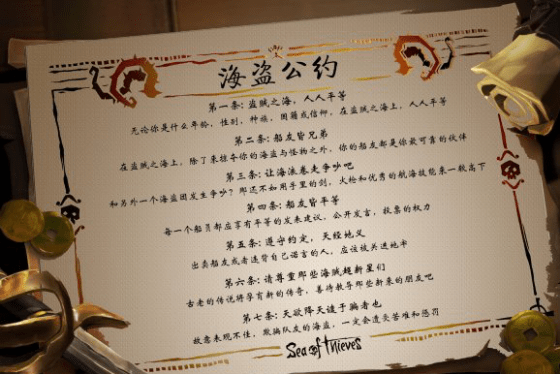 海盗公约
第一条: 盗贼之海，人人平等
无论你是什么年龄，性别，种族，国籍或信仰，在盗贼之海上，人人平等
第二条: 船友皆兄弟
在盗贼之海上，除了来掠夺你的海盗与怪物之外，你的船友都是你最可靠的伙伴
第三条: 让海浪卷走争吵吧
和另外一个海盗团发生争吵？那还不如用手里的剑，火枪和优秀的航海技能来一较高下
第四条: 船友皆平等
每一个船员都应享有平等的发表建议，公开发言，投票的权力
第五条: 遵守约定，天经地义
出卖船友或者违背自己诺言的人，应该被关进地牢
第六条: 请尊重那些海贼超新星们
古老的传说将孕育新的传奇，善待教导那些新来的朋友吧
第七条: 天欲降天谴于骗者也
故意表现不佳，欺骗队友的海盗，一定会遭受苦难和惩罚
Sea of Thieves